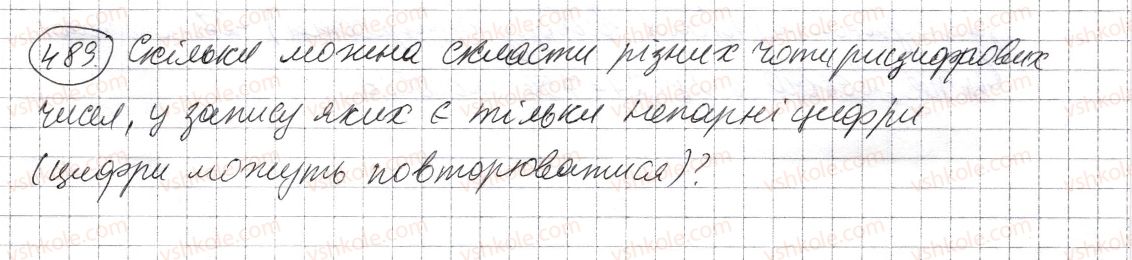 483 Скільки можна скласти різних чотирицифрових
чисел, у запису яких є тільки непарні цифри
(цифри можуть повторюватися)?